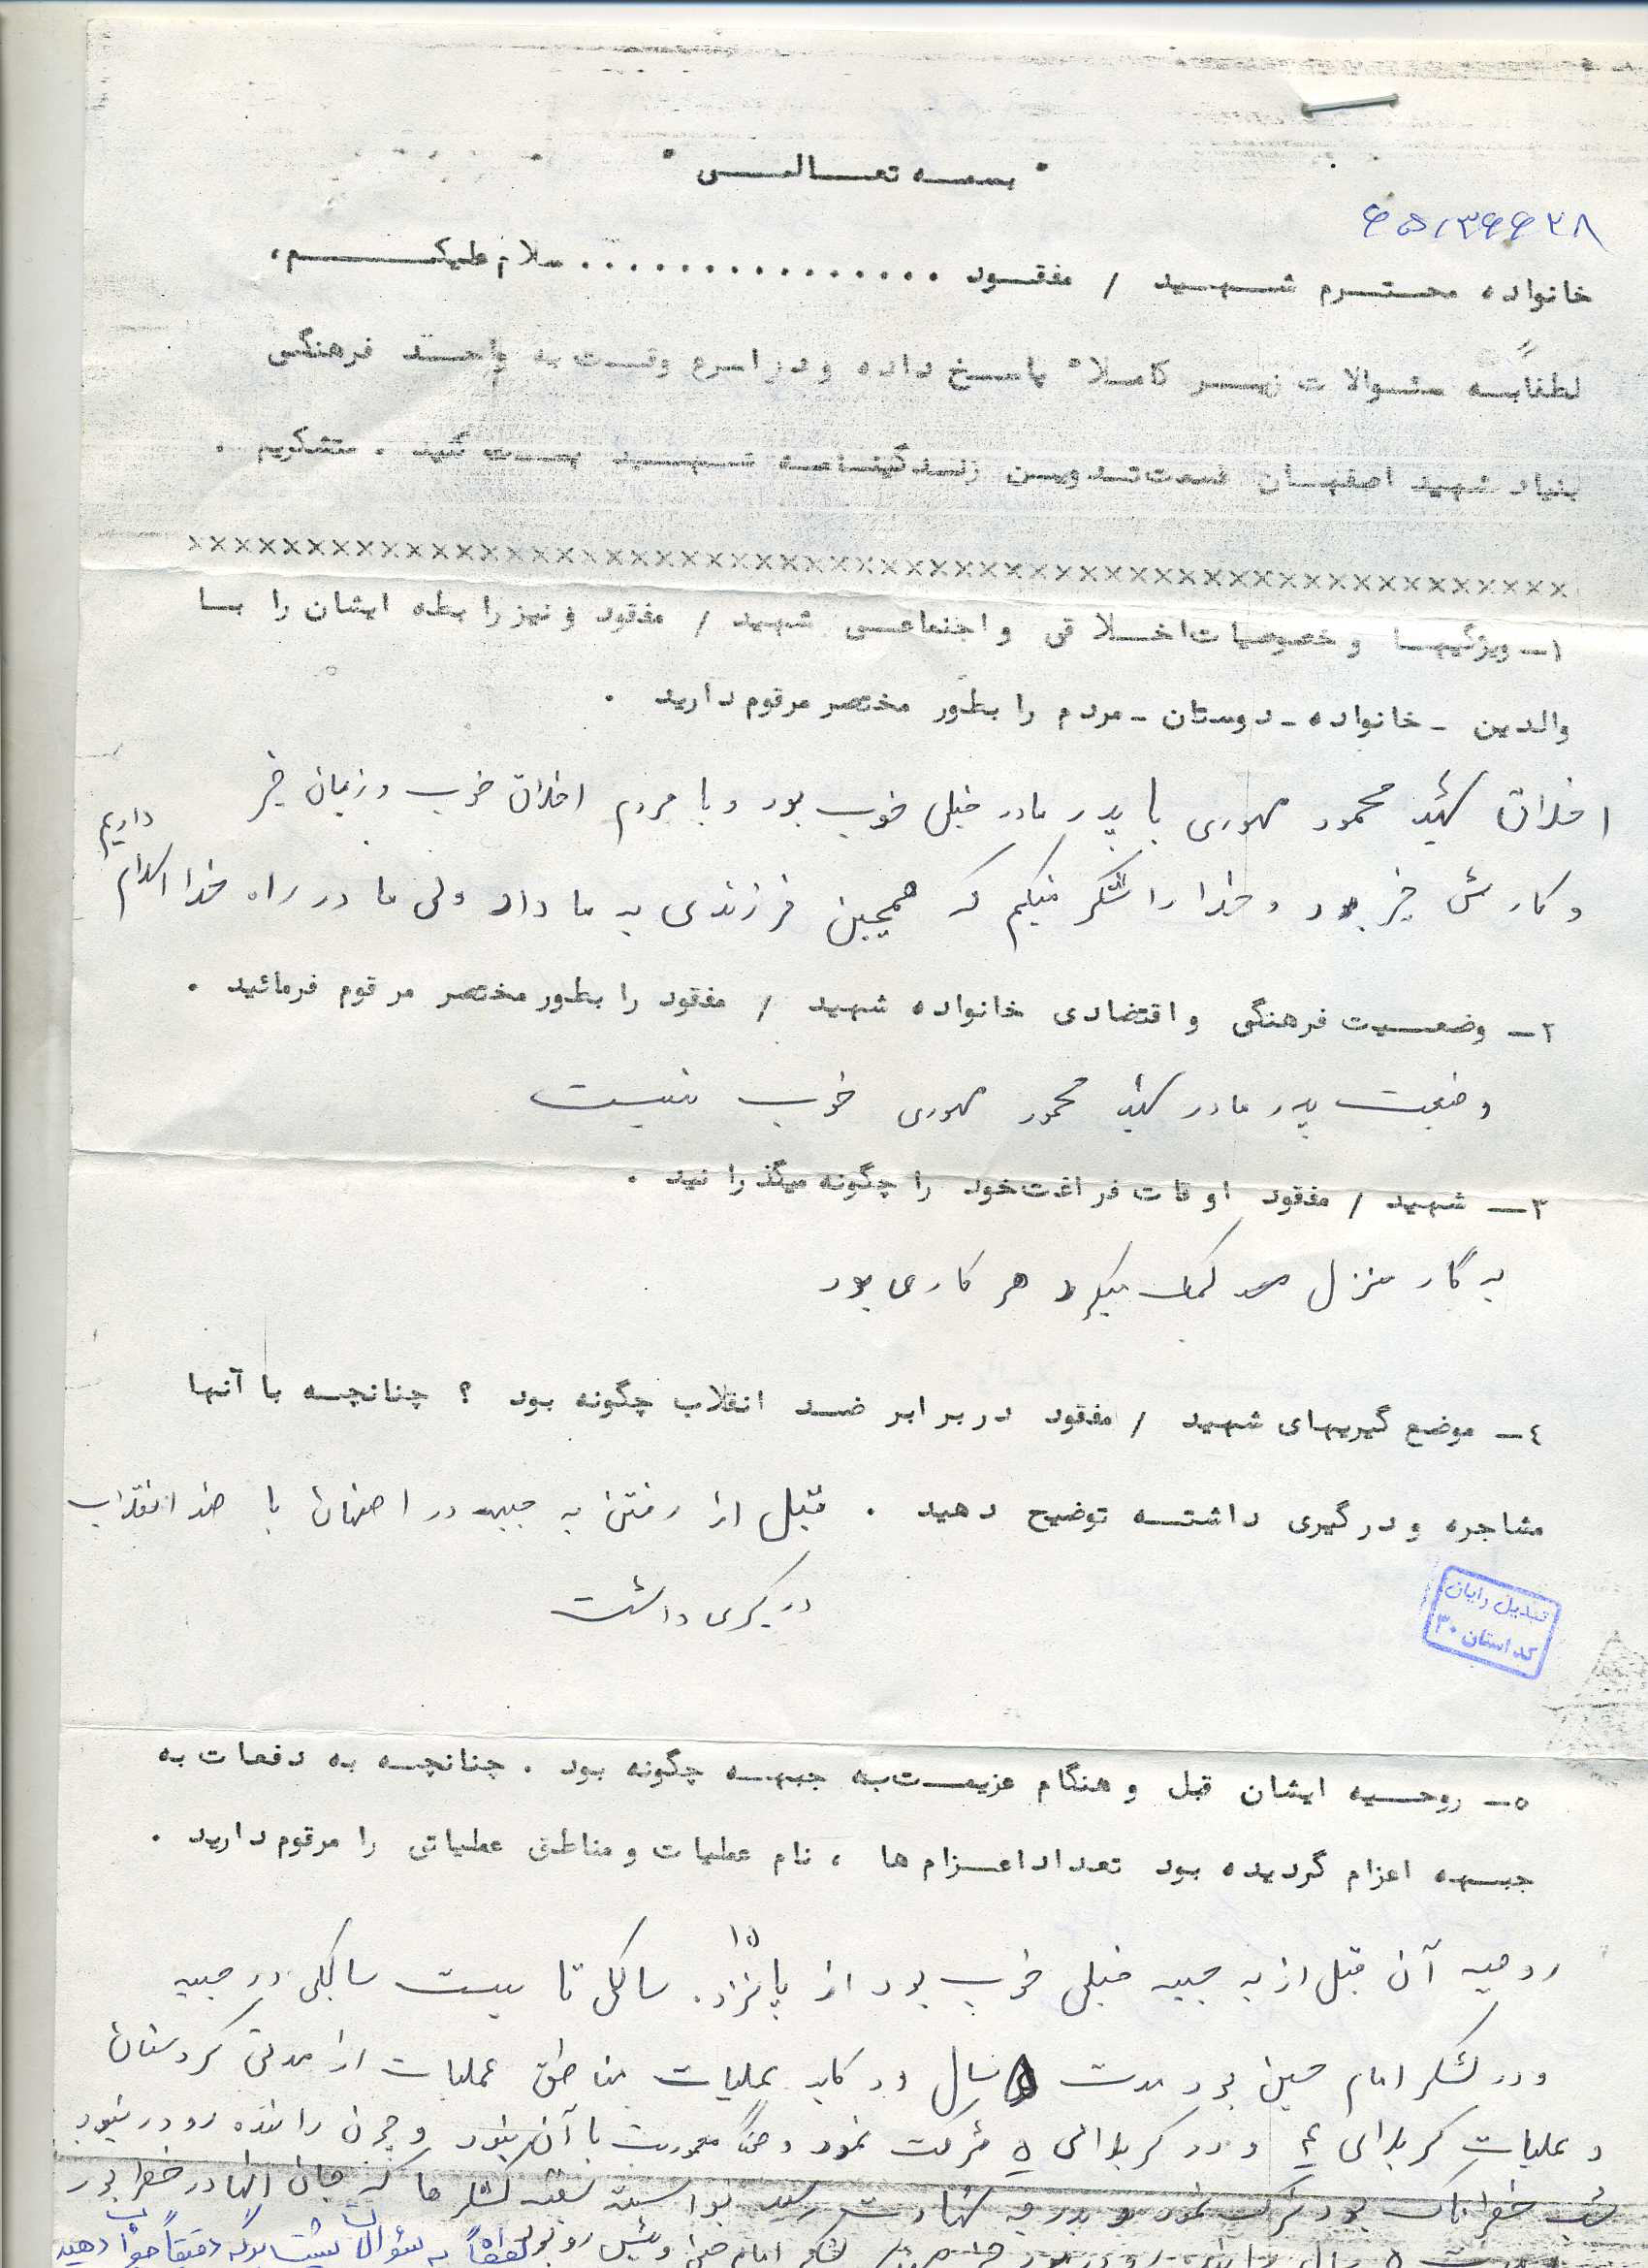 " بسمه تعالی "
۶۵۱۳۶۶۲۸
خانواده محترم شهید / مفقود ............... سلام علیکم،
لطفاً به سئوالات زیر کاملا" پاسخ داده و در اسرع وقت به واحد فرهنگی
بنیاد شهید اصفهان قسمت تدوین زندگینامه شهید پست کنید . متشکریم .
xxxxxxxxxxxxxxxxxxxxxxxxxxxxxxxxxxxxxxxxxxxxxxxxxxxxxxx
۱- ویژگیها و خصوصیات اخلاقی و اجتماعی شهید / مفقود و نیز رابطه ایشان را با
والدین - خانواده - دوستان - مردم را بطور مختصر مرقوم دارید .
اخلاق شهید محمود مهوری با پدر مادر خیلی خوب بود و با مردم اخلاق خوب و زبان خیر
داریم
و کارش خیر بود و خدا را شکر میکم که همچین فرزندی به ما داد ولی ما در راه خدا
۲- وضعیت فرهنگی و اقتضادی خانواده شهید / مفقود را بطور مختصر مرقوم فرمائید .
وضعیت پدر مادر شهید محمود مهوری خوب نیست
۳- شهید / مفقود اوقات فراغت خود را چگونه میگذرانید .
به کار منزل کمک میکرد هر کاری بود
٤- موضع گیریهای شهید / مفقود در برابر ضد انقلاب چگونه بود ؟ چنانچه با آنها
مشاجره و درگیری داشته توضیح دهید . قبل از رفتن به جبهه در اصفهان با ضد انقلاب
درگیری داشت
تبدیل رایان
کد استان ۳۰
۵- روحیه ایشان قبل و هنگام عزیمت به جبهه چگونه بود . چنانچه به دفعات به
جبهه اعزام گردیده بود تعداد اعزام ها ، نام عملیات و مناطق عملیاتی را مرقوم دارید .
۱۵
روحیه آن قبل از به جبهه خیلی خوب بود از پانزده سالگی تا بیست سالگی در جبهه
و در لشکر امام حسین بود مدت ۵ سال در عملیات مناطق عملیات از مدتی کردستان
و عملیات کربلای ۴ و در کربلای ۵ شرکت نمود و با آن نبود و چون راننده رودر نبود
خطرناک بود شرکت نمود و به شهادت رسید لشکر ما که جان آنها در خطر بود
لطفاً به سئوالات پشت برگه دقیقاً جواب دهید